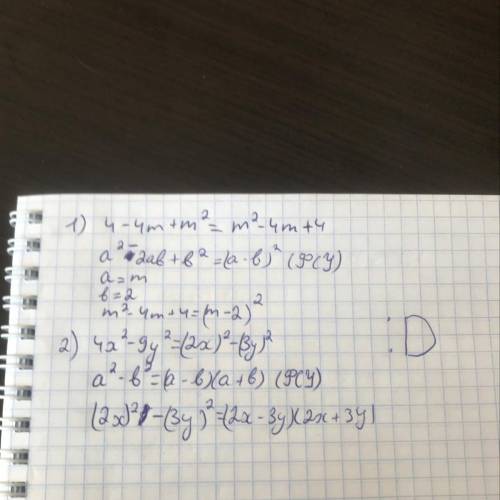 1) 4 - 4m + m² = m² - 4m + 4
a² - 2ab + b² = (a - b)² (ФСУ)
a = m
b = 2
m² - 4m + 4 = (m - 2)²
2) 4x² - 9y² = (2x)² - (3y)²
a² - b² = (a - b)(a + b) (ФСУ)
(2x)² - (3y)² = (2x - 3y)(2x + 3y)
:D